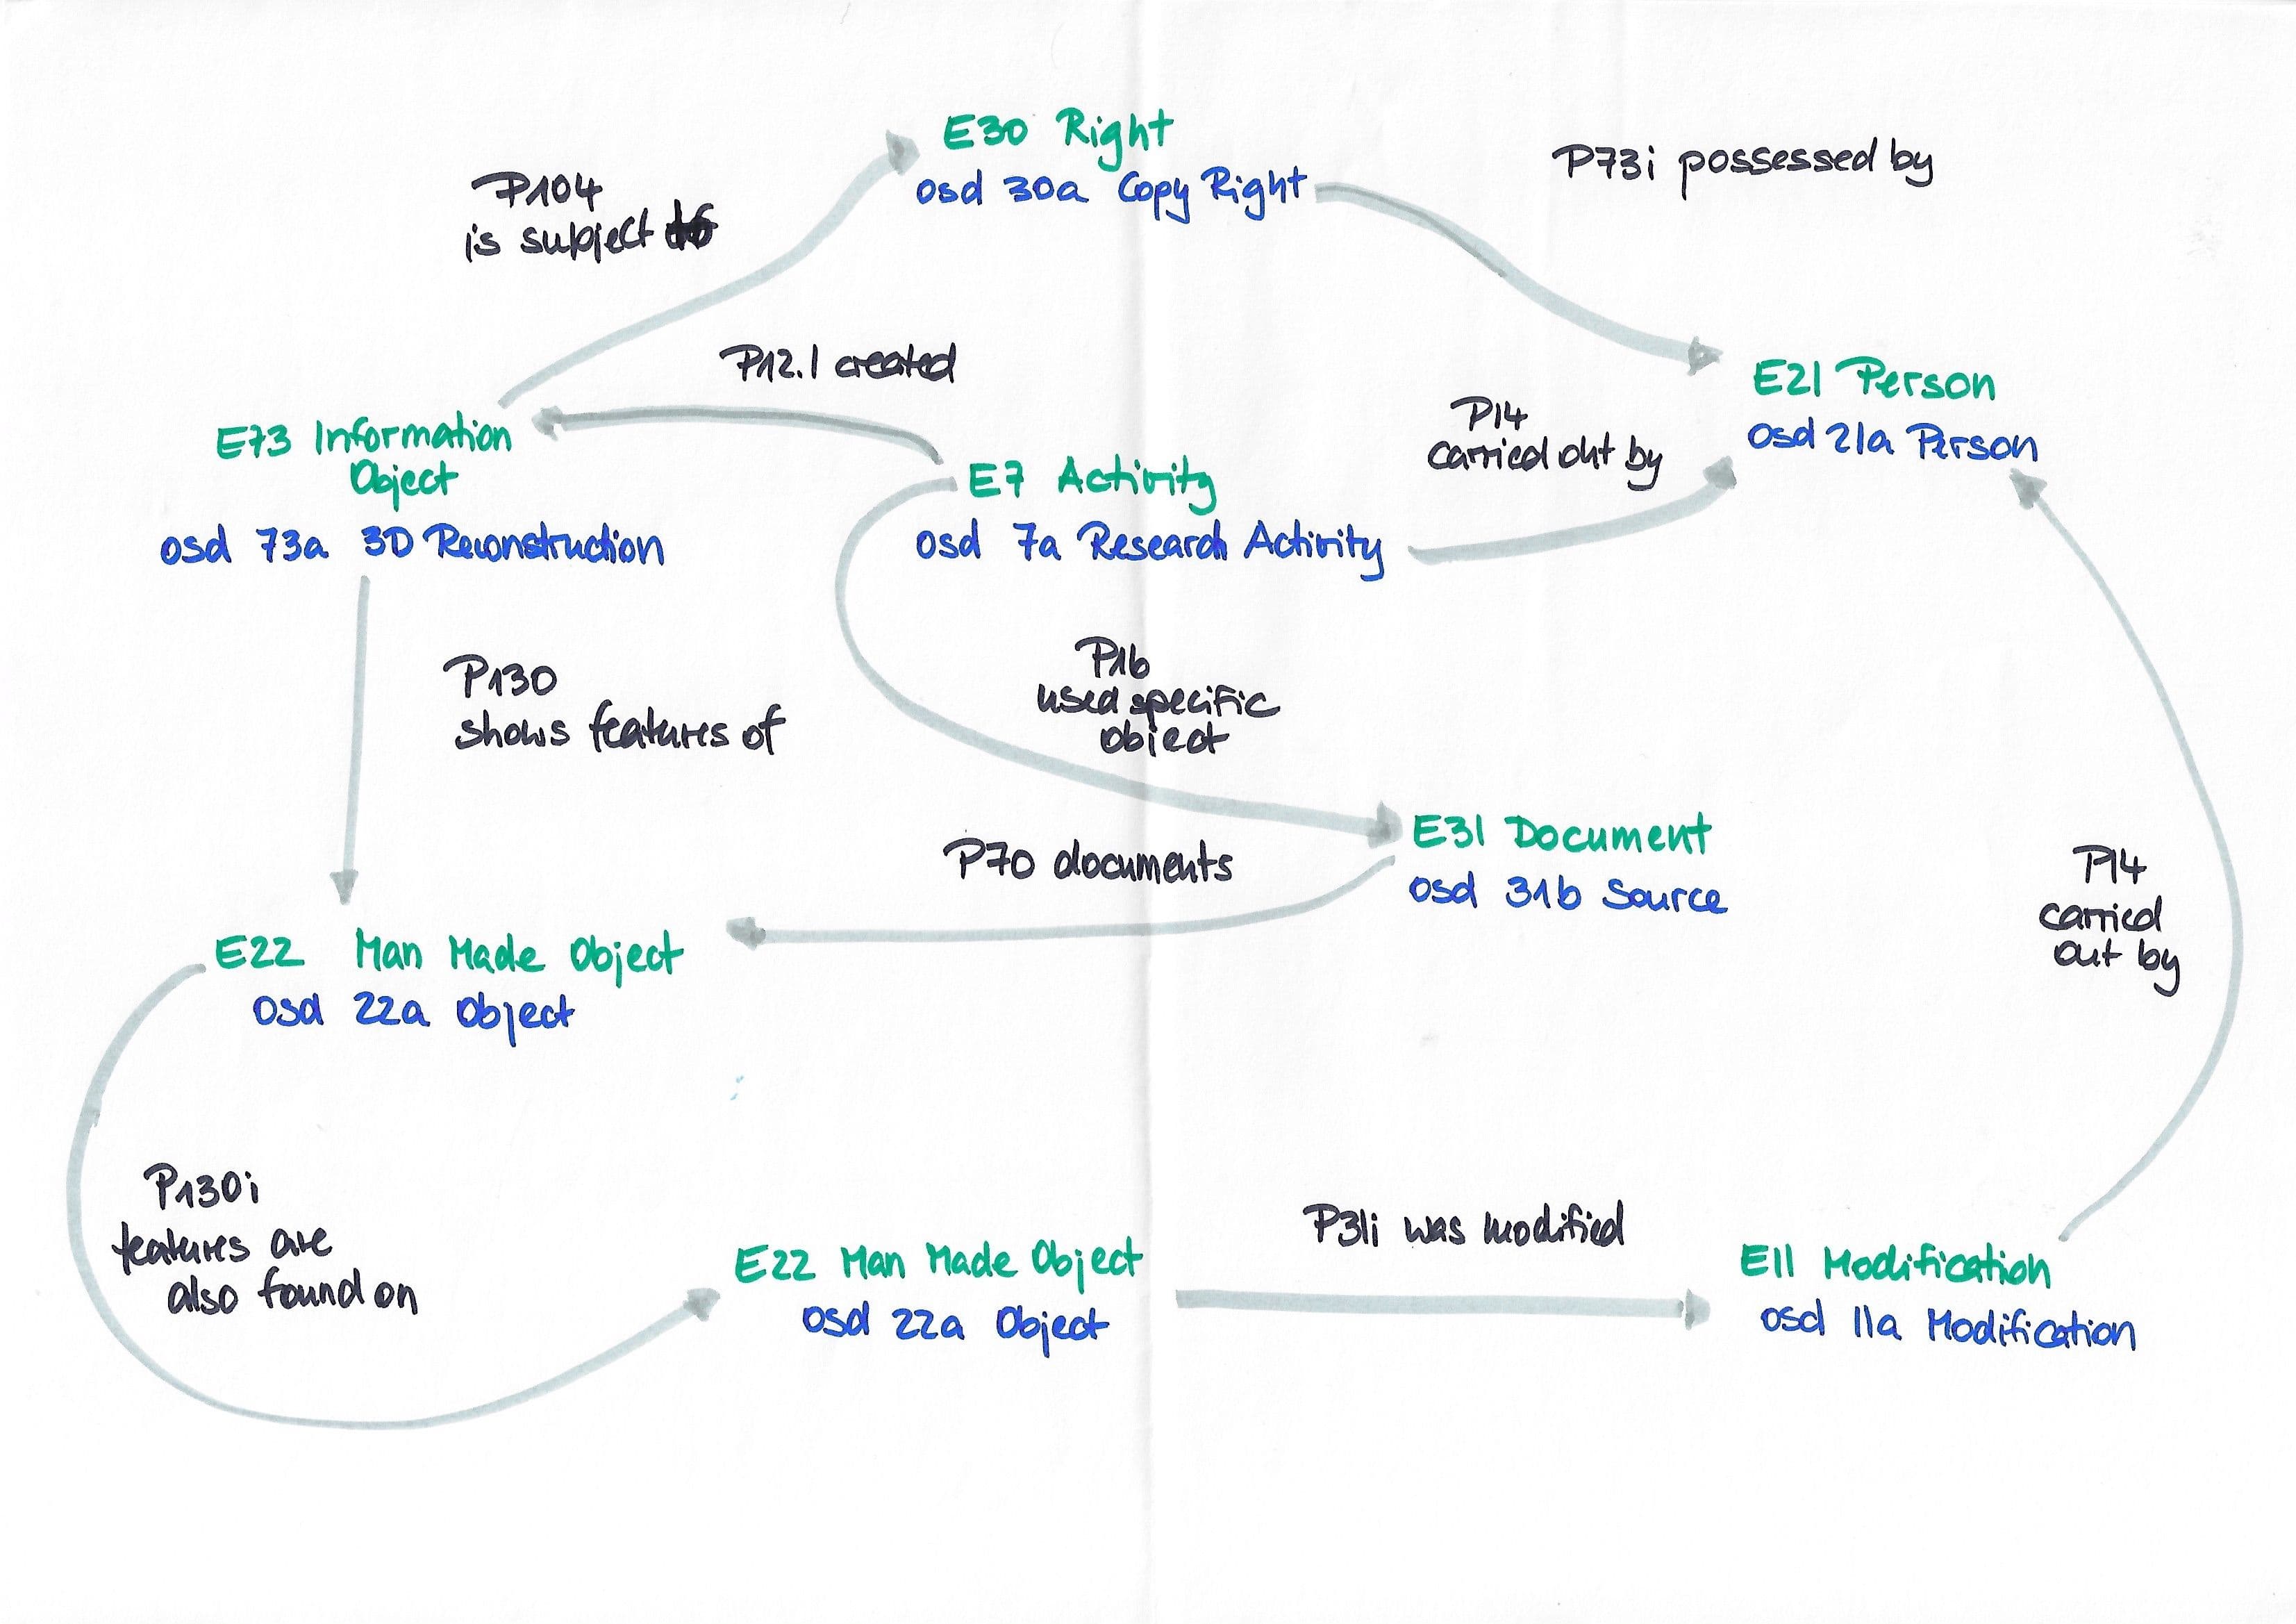 E30 Right
osd 30a Copy Right
P73i possessed by
P104
is subject to
P12.1 created
E21 Person
osd 21a Person
P14
carried out by
E73 Information
Object
osd 73a 3D Reconstruction
E7 Activity
osd 7a Research Activity
P130
shows features of
P16
used specific
object
E31 Document
osd 31b Source
P70 documents
P14
carried
out by
E22 Man Made Object
osd 22a Object
P130i
features are
also found on
E22 Man Made Object
osd 22a Object
P31i was modified
E11 Modification
osd 11a Modification